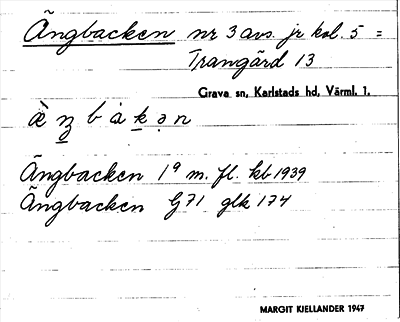 Ängbacken nr 3 avs. jr kol. 5 =
Trangärd 13
Grava sn, Karlstads hd, Värml. l.
Ängbacken 1⁹ m. fl. kb 1939
Ängbacken G 71 glk 174
MARGIT KJELLANDER 1947